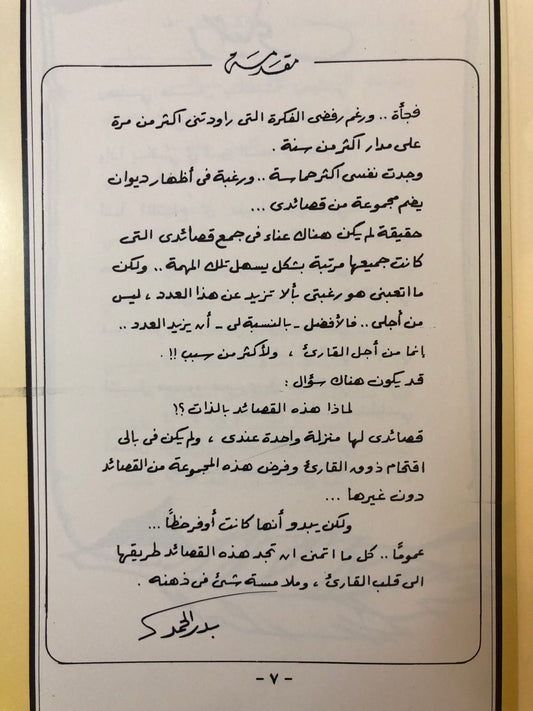 مقدمة
فجأة .. ورغم رفضى الفكرة التى راودتنى اكثر من مرة
على مدار اكثر من سنة .
وجدت نفسى اكثر حماسة .. ورغبة فى أظهار ديوان
يضم مجموعة من قصائدى ...
حقيقة لم يكن هناك عناء فى جمع قصائدى التى
كانت جميعها مرتبة بشكل يسهل تلك المهمة .. ولكن
ما اتعبنى هو رغبتى بألا تزيد عن هذا العدد ، ليس
من أجلى .. فالأفضل - بالنسبة لى - أن يزيد العدد ..
إنما من أجل القارئ ، ولأكثر من سبب !! .
قد يكون هناك سؤال :
لماذا هذه القصائد بالذات ؟!
قصائدى لها منزلة واحدة عندى ، ولم يكن فى بالى
اقتحام ذوق القارئ وفرض هذه المجموعة من القصائد
دون غيرها ...
ولكن يبدو أنها كانت أوفر حظاً ...
عموماً .. كل ما اتمنى ان تجد هذه القصائد طريقها
الى قلب القارئ ، وملامسة شئ فى ذهنه .
بدر الحمد
- ٧ -